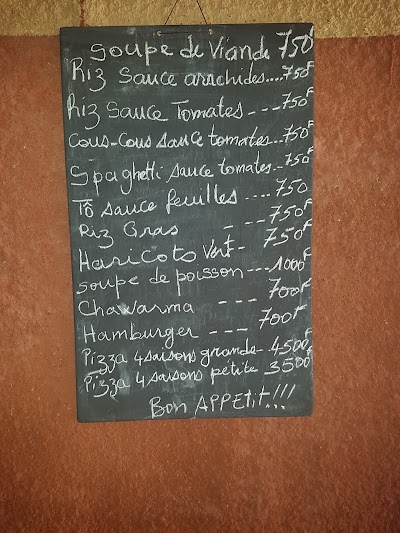 Soupe de Viande 750F
Riz Sauce arachides....750F
Riz Sauce Tomates - - - 750F
Cous-Cous sauce tomates...750F
Spaghetti sauce tomates..750F
Tô sauce feuilles ---- 750
Riz Gras - --- 750F
Haricoto Vert- - 750F
soupe de poisson --- 1000F
Chawarma --- 700F
Hamburger --- 700F
Pizza 4 saisons grande-- 4500F
Pizza 4 saisons pétite 3500F
Bon APPEtit!!!